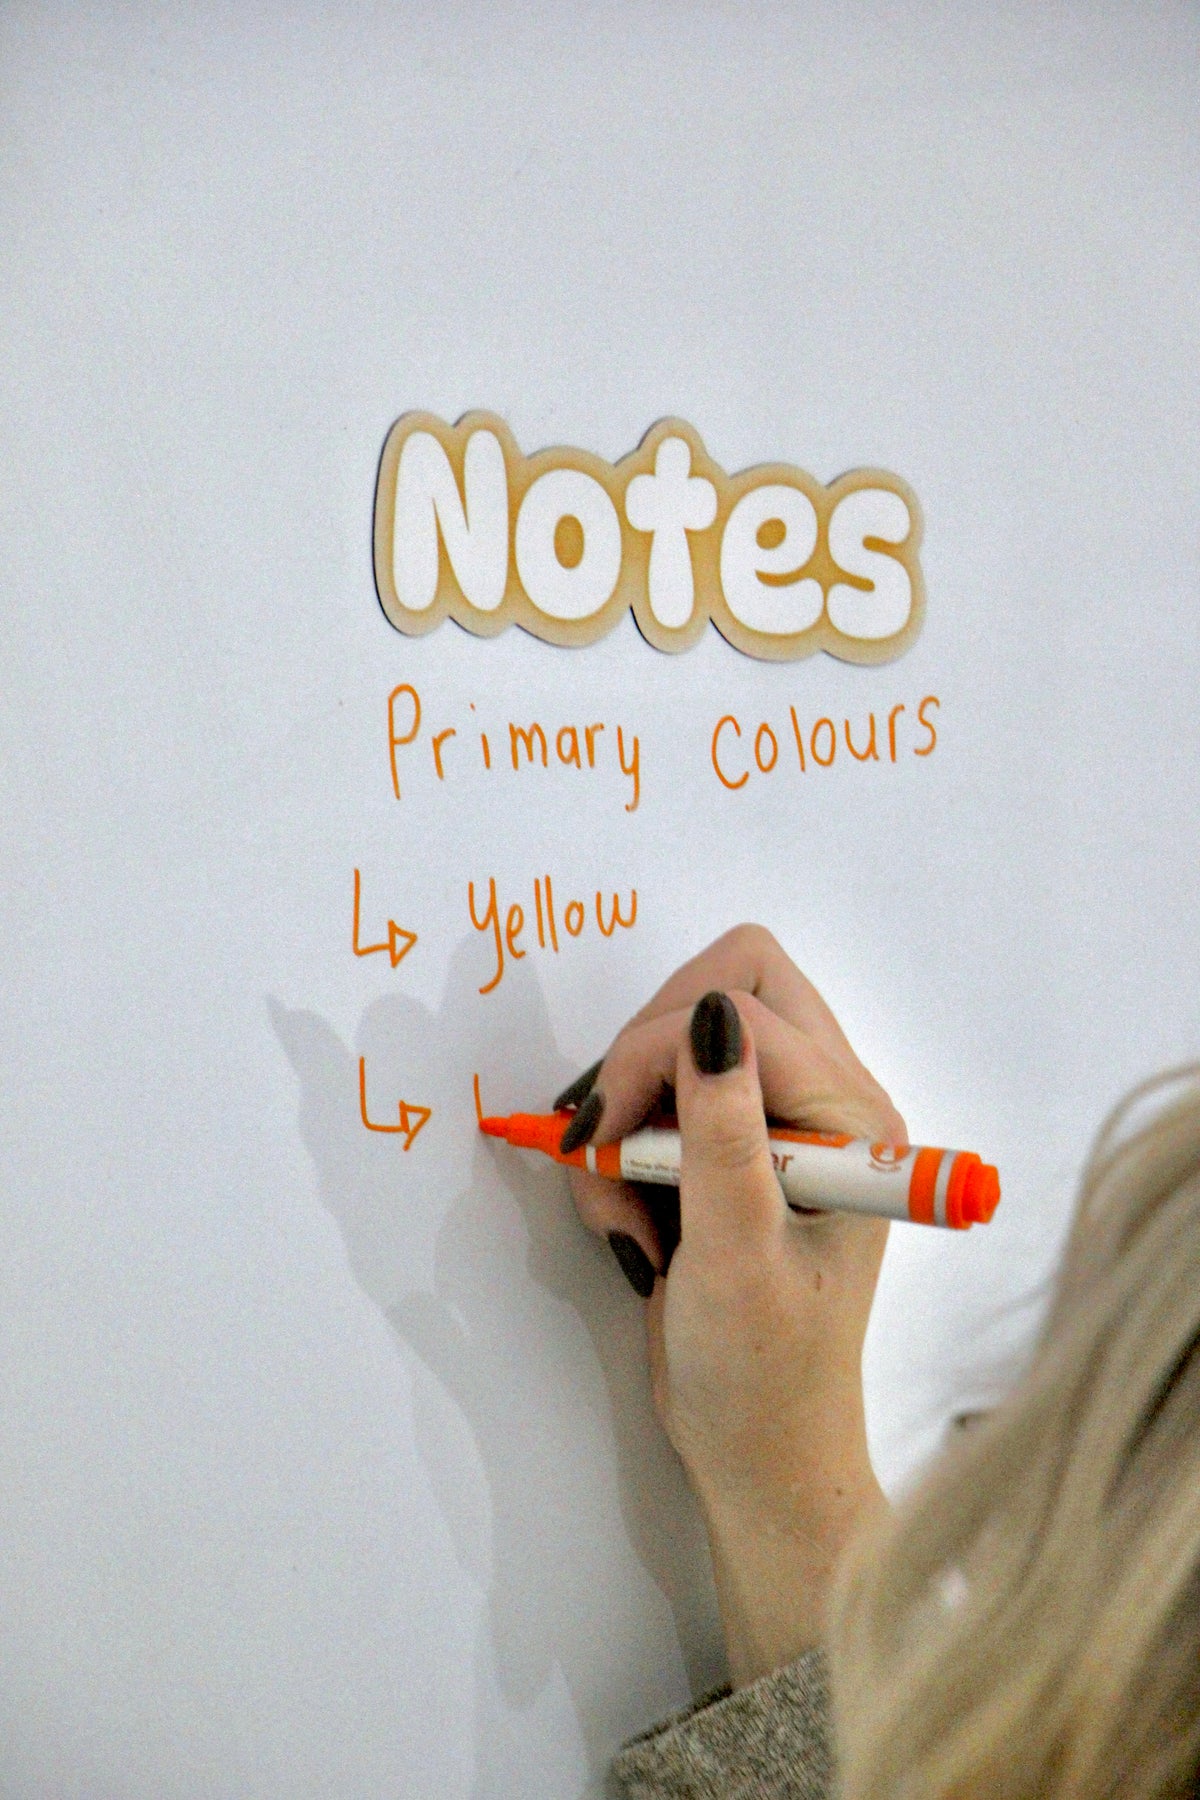 Notes
Primary Colours
Yellow